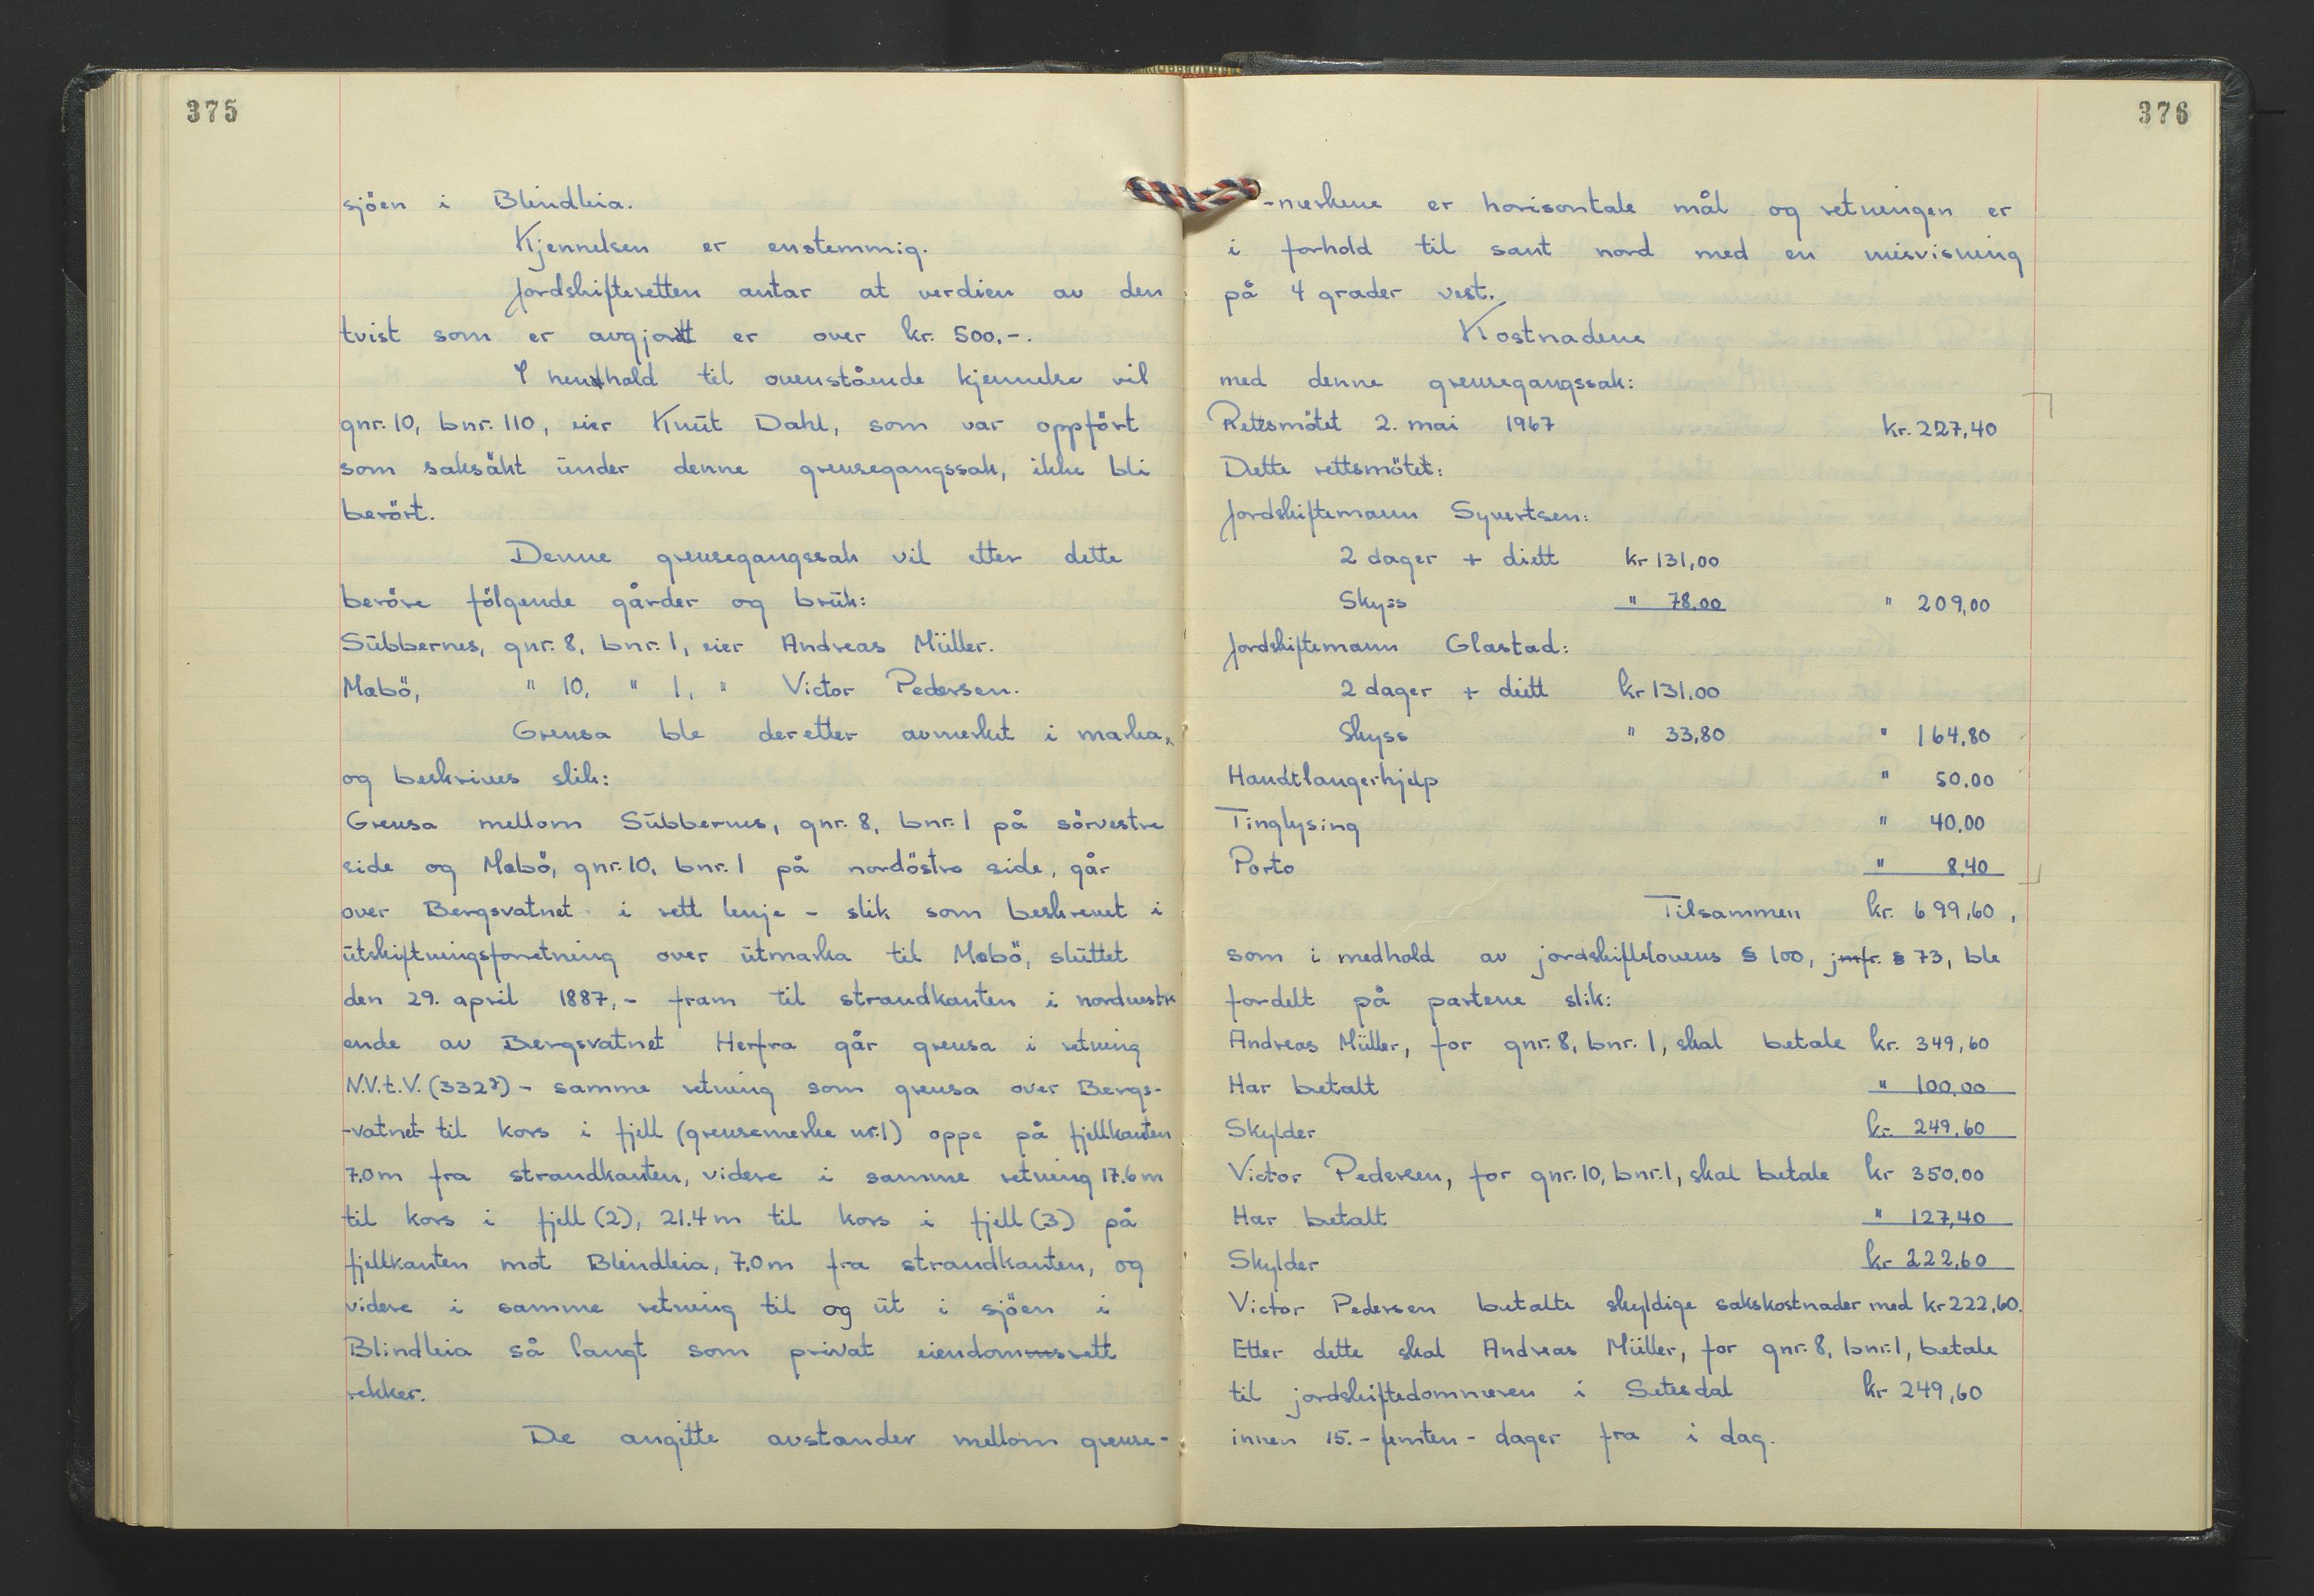 375
sjöen i Blindleia.
Kjennelsen er enstemmig.
Jordskifteretten antar at verdien av den
tvist som er avgjort er over kr. 500.-.
I henhold til ovenstående kjennelse vil
gnr. 10, bnr. 110, eier Knut Dahl, som var oppfört
som saksökt under denne grensegangssak, ikke bli
berört.
Denne grensegangssak vil etter dette
beröre fölgende gårder og bruk:
Subbernes, gnr. 8, bnr. 1, eier Andreas Müller.
Mæbö, " 10, " 1, " Victor Pedersen.
Grensa ble deretter avmerket i marka,
og beskrives slik:
Grensa mellom Subbernes, gnr. 8, bnr. 1 på sörvestre
side og Mæbö, gnr. 10, bnr. 1 på nordöstre side, går
over Bergsvatnet i rett lenje - slik som beskrevet i
utskiftningsforretning over utmarka til Mæbö, sluttet
den 29. april 1887, - fram til strandkanten i nordvestre
ende av Bergsvatnet Herfra går grensa i retning
N.V.t.V. (332?) - samme retning som grensa over Bergs-
-vatnet til kors i fjell (grensemerke nr. 1) oppe på fjellkanten
7.0 m fra strandkanten, videre i samme retning 17.6 m
til kors i fjell (2), 21.4 m til kors i fjell (3) på
fjellkanten mot Blindleia, 7.0 m fra strandkanten, og
videre i samme retning til og ut i sjöen i
Blindleia så langt som privat eiendomsrett
rekker.
De angitte avstander mellom grense-
376
-merkene er horisontale mål og retningen er
i forhold til sant nord med en misvisning
på 4 grader vest.
Kostnadene
med denne grensegangssak:
Rettsmötet 2. mai 1967 kr. 227,40
Dette rettsmötet:
Jordskiftemann Syvertsen:
2 dager + diett kr 131,00
Skyss " 78.00 " 209,00
Jordskiftemann Glastad:
2 dager + diett kr 131.00
Skyss " 33,80 " 164,80
Handtlangerhjelp " 50.00
Tinglysing " 40.00
Porto " 8,40
Tilsammen kr. 699,60,
som i medhold av jordskiftelovens § 100, jmfr. § 73, ble
fordelt på partene slik:
Andreas Müller, for gnr. 8, bnr. 1, skal betale kr. 349,60
Har betalt " 100,00
Skylder kr. 249,60
Victor Pedersen, for gnr. 10, bnr. 1, skal betale kr 350.00
Har betalt " 127,40
Skylder kr 222,60
Victor Pedersen betalte skyldige sakskostnader med kr 222,60.
Etter dette skal Andreas Müller, for gnr. 8, bnr. 1, betale
til jordskiftedommeren i Setesdal kr 249,60
innen 15. - femten - dager fra i dag.